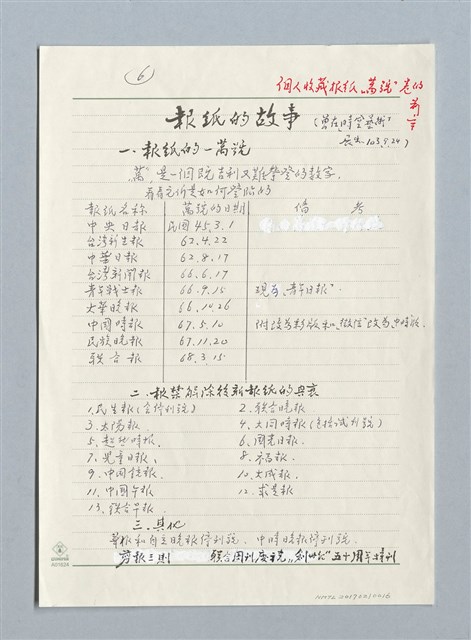 6
個人收藏報紙"萬號"
報紙的故事
(曾在時空藝術
展出 103.9.24)
一、報紙的一萬號
"萬"是一個既吉利又難攀登的數字,
看看它們是如何登陸的
報紙名稱 萬號的日期 備考
中央日報 民國45.3.1
台灣新生報 62.4.22
中華日報 62.8.17
台灣新聞報 66.6.17
青年戰士報 66.9.15 現為"青年日報"
大華晚報 66.10.26
中國時報 67.5.10 附該為新版和"徵信"改為中時版
民族晚報 67.11.20
聯合報 68.3.15
二、報禁解除後新報紙的興衰
1.民生報(含停刊號) 2.聯合晚報
3.太陽報 4.大同時報(包括試刊號)
5. 時報 6.國光日報、
7.兒童日報、 8. 報
9.中國 報 10.大成報
11.中國午報 12. 報
13.聯合早報
三、其他
早報和自立晚報停刊號、中時晚報停刊號
剪報三則 聯合周刊 "創世紀"五十周年特刊
A01024
NMTL 20170210016